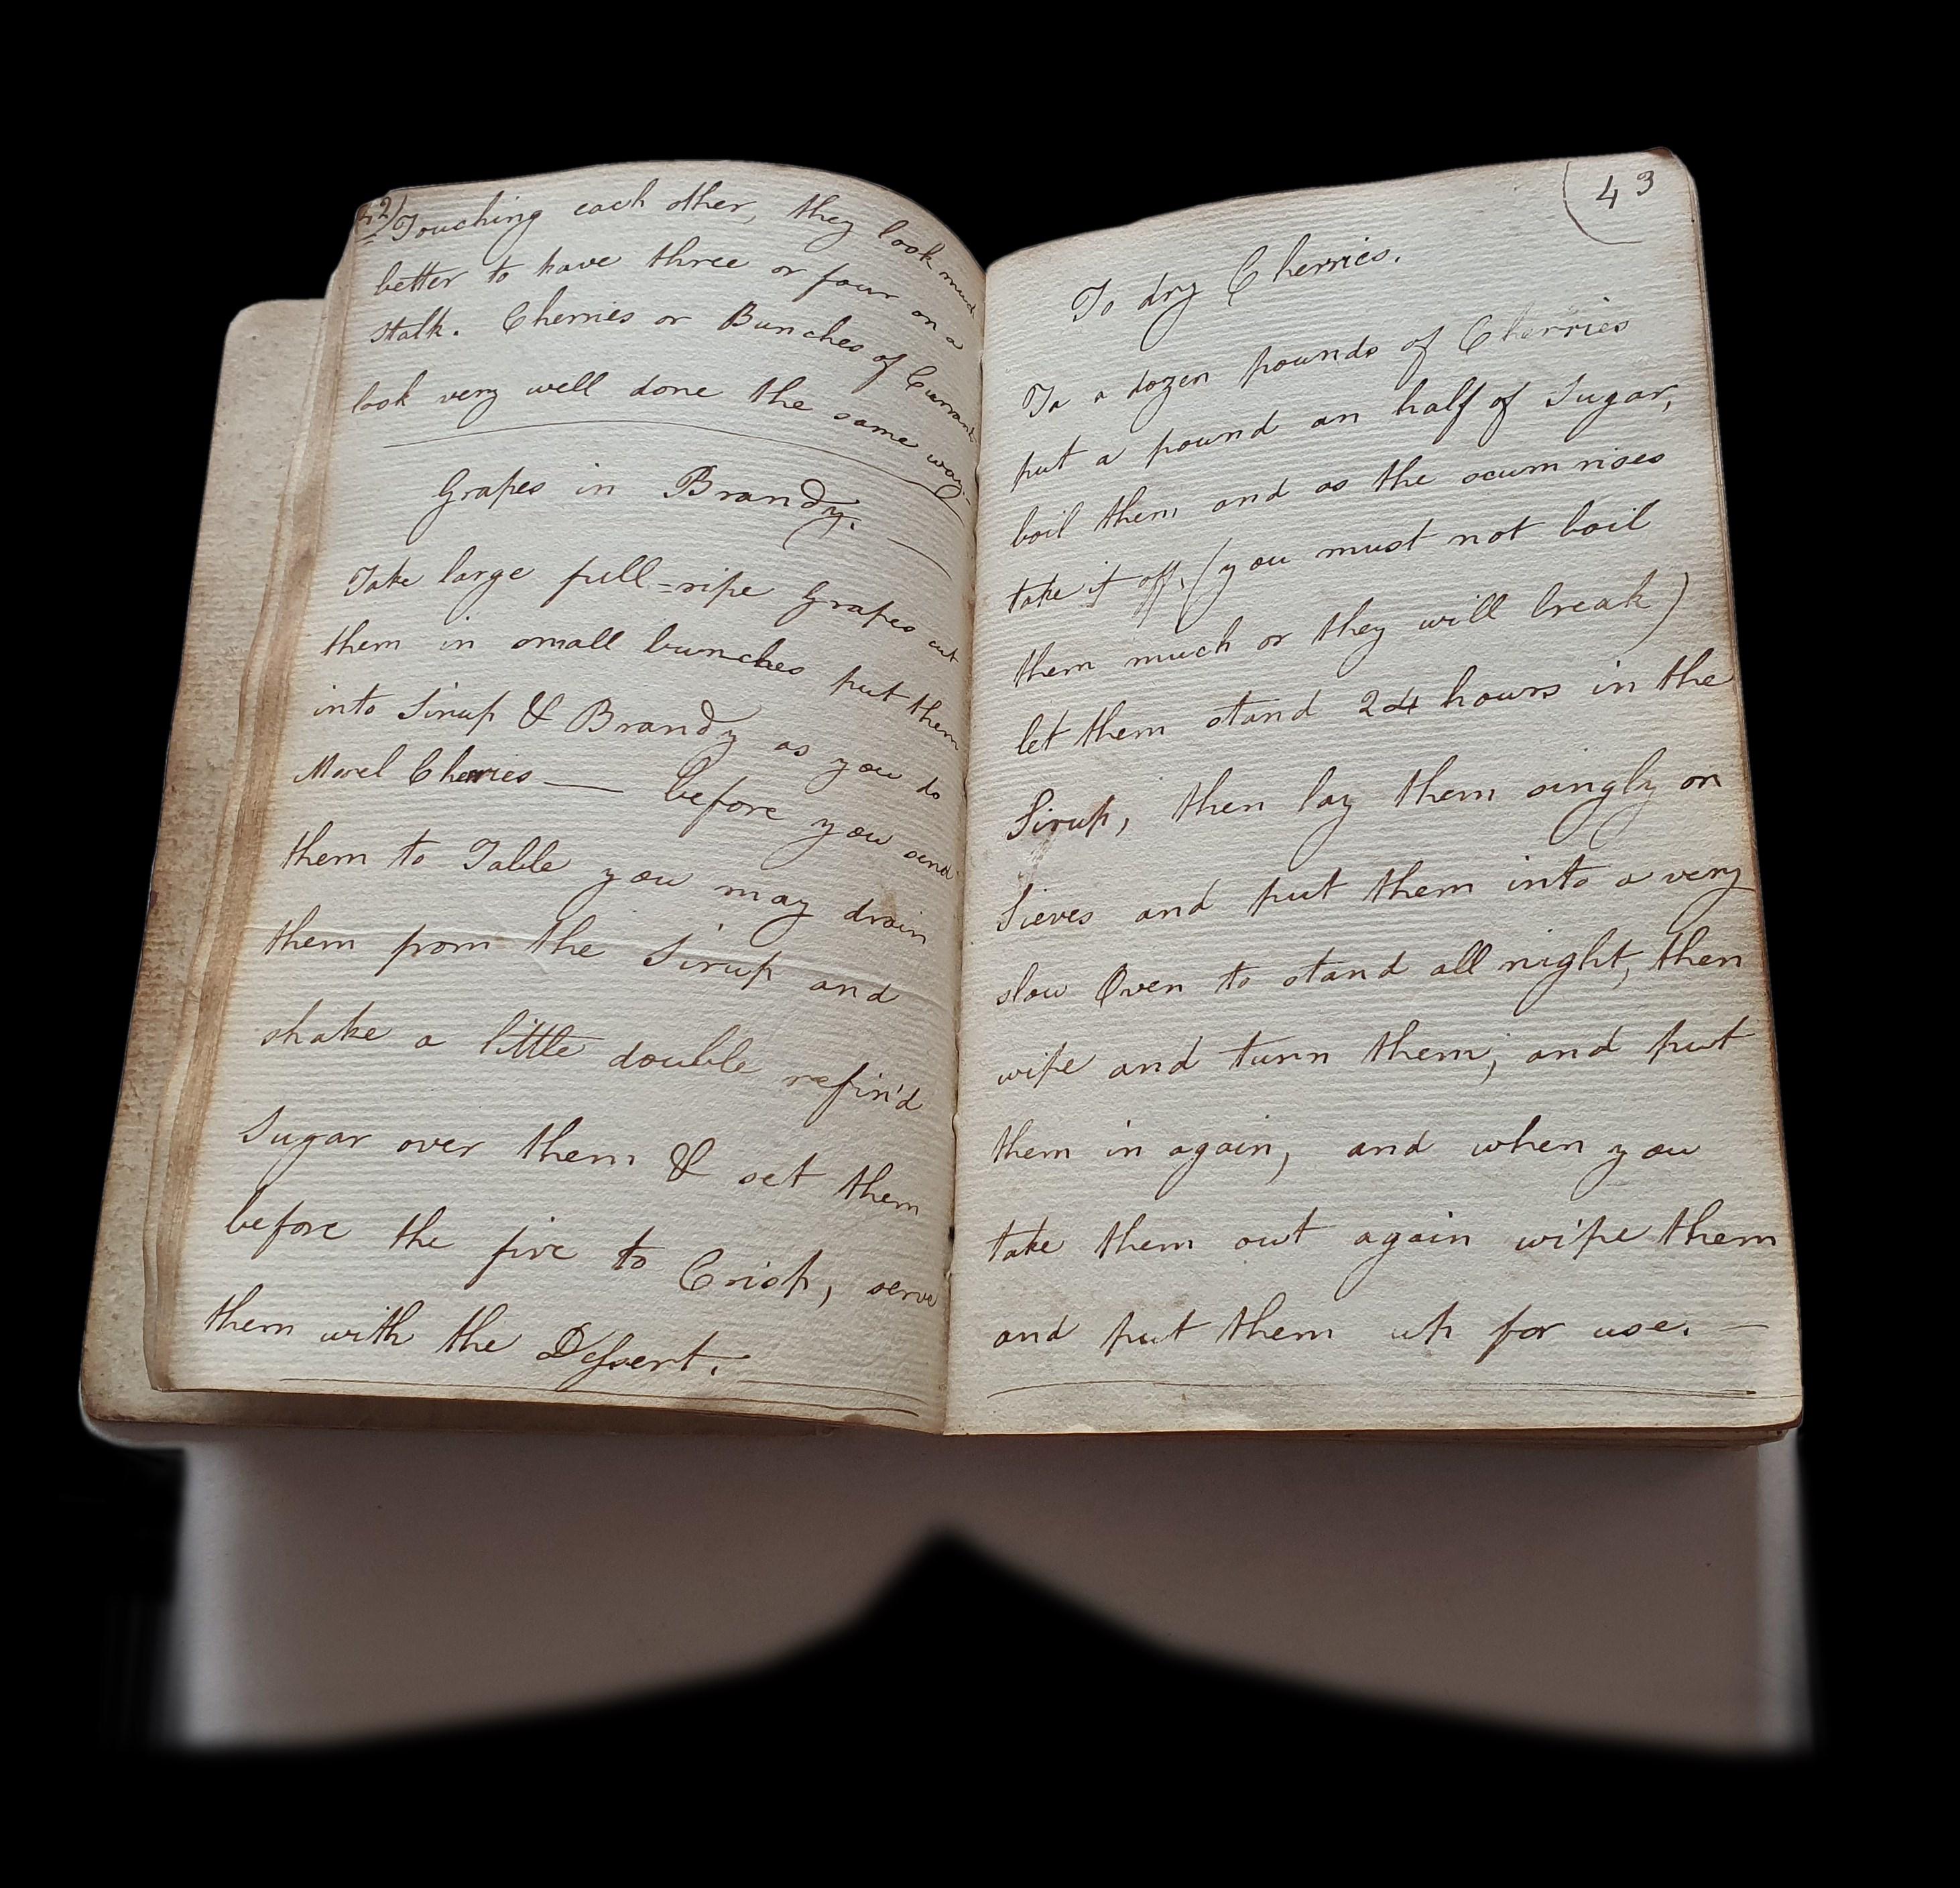 42)
Touching each other, they look much
better to have three or four on a
Stalk. Cherries or Bunches of Currants
look very well done the same way.
Grapes in Brandy.
Take large full=ripe Grapes cut
them in small bunches put them
into Sirup & Brandy as you do
Morel Cherries — before you send
them to Table you may drain
them from the Sirup and
shake a little double refin'd
Sugar over them & set them
before the fire to Crisp, serve
them with the Dessert.
(43
To dry Cherries.
To a dozen pounds of Cherries
put a pound an half of Sugar,
boil them and as the scum rises
take it off. (you must not boil
them much or they will break)
let them stand 24 hours in the
Sirup, then lay them singly on
Sieves and put them into a very
slow Oven to stand all night, then
wipe and turn them; and put
them in again, and when you
take them out again wipe them
and put them up for use. —